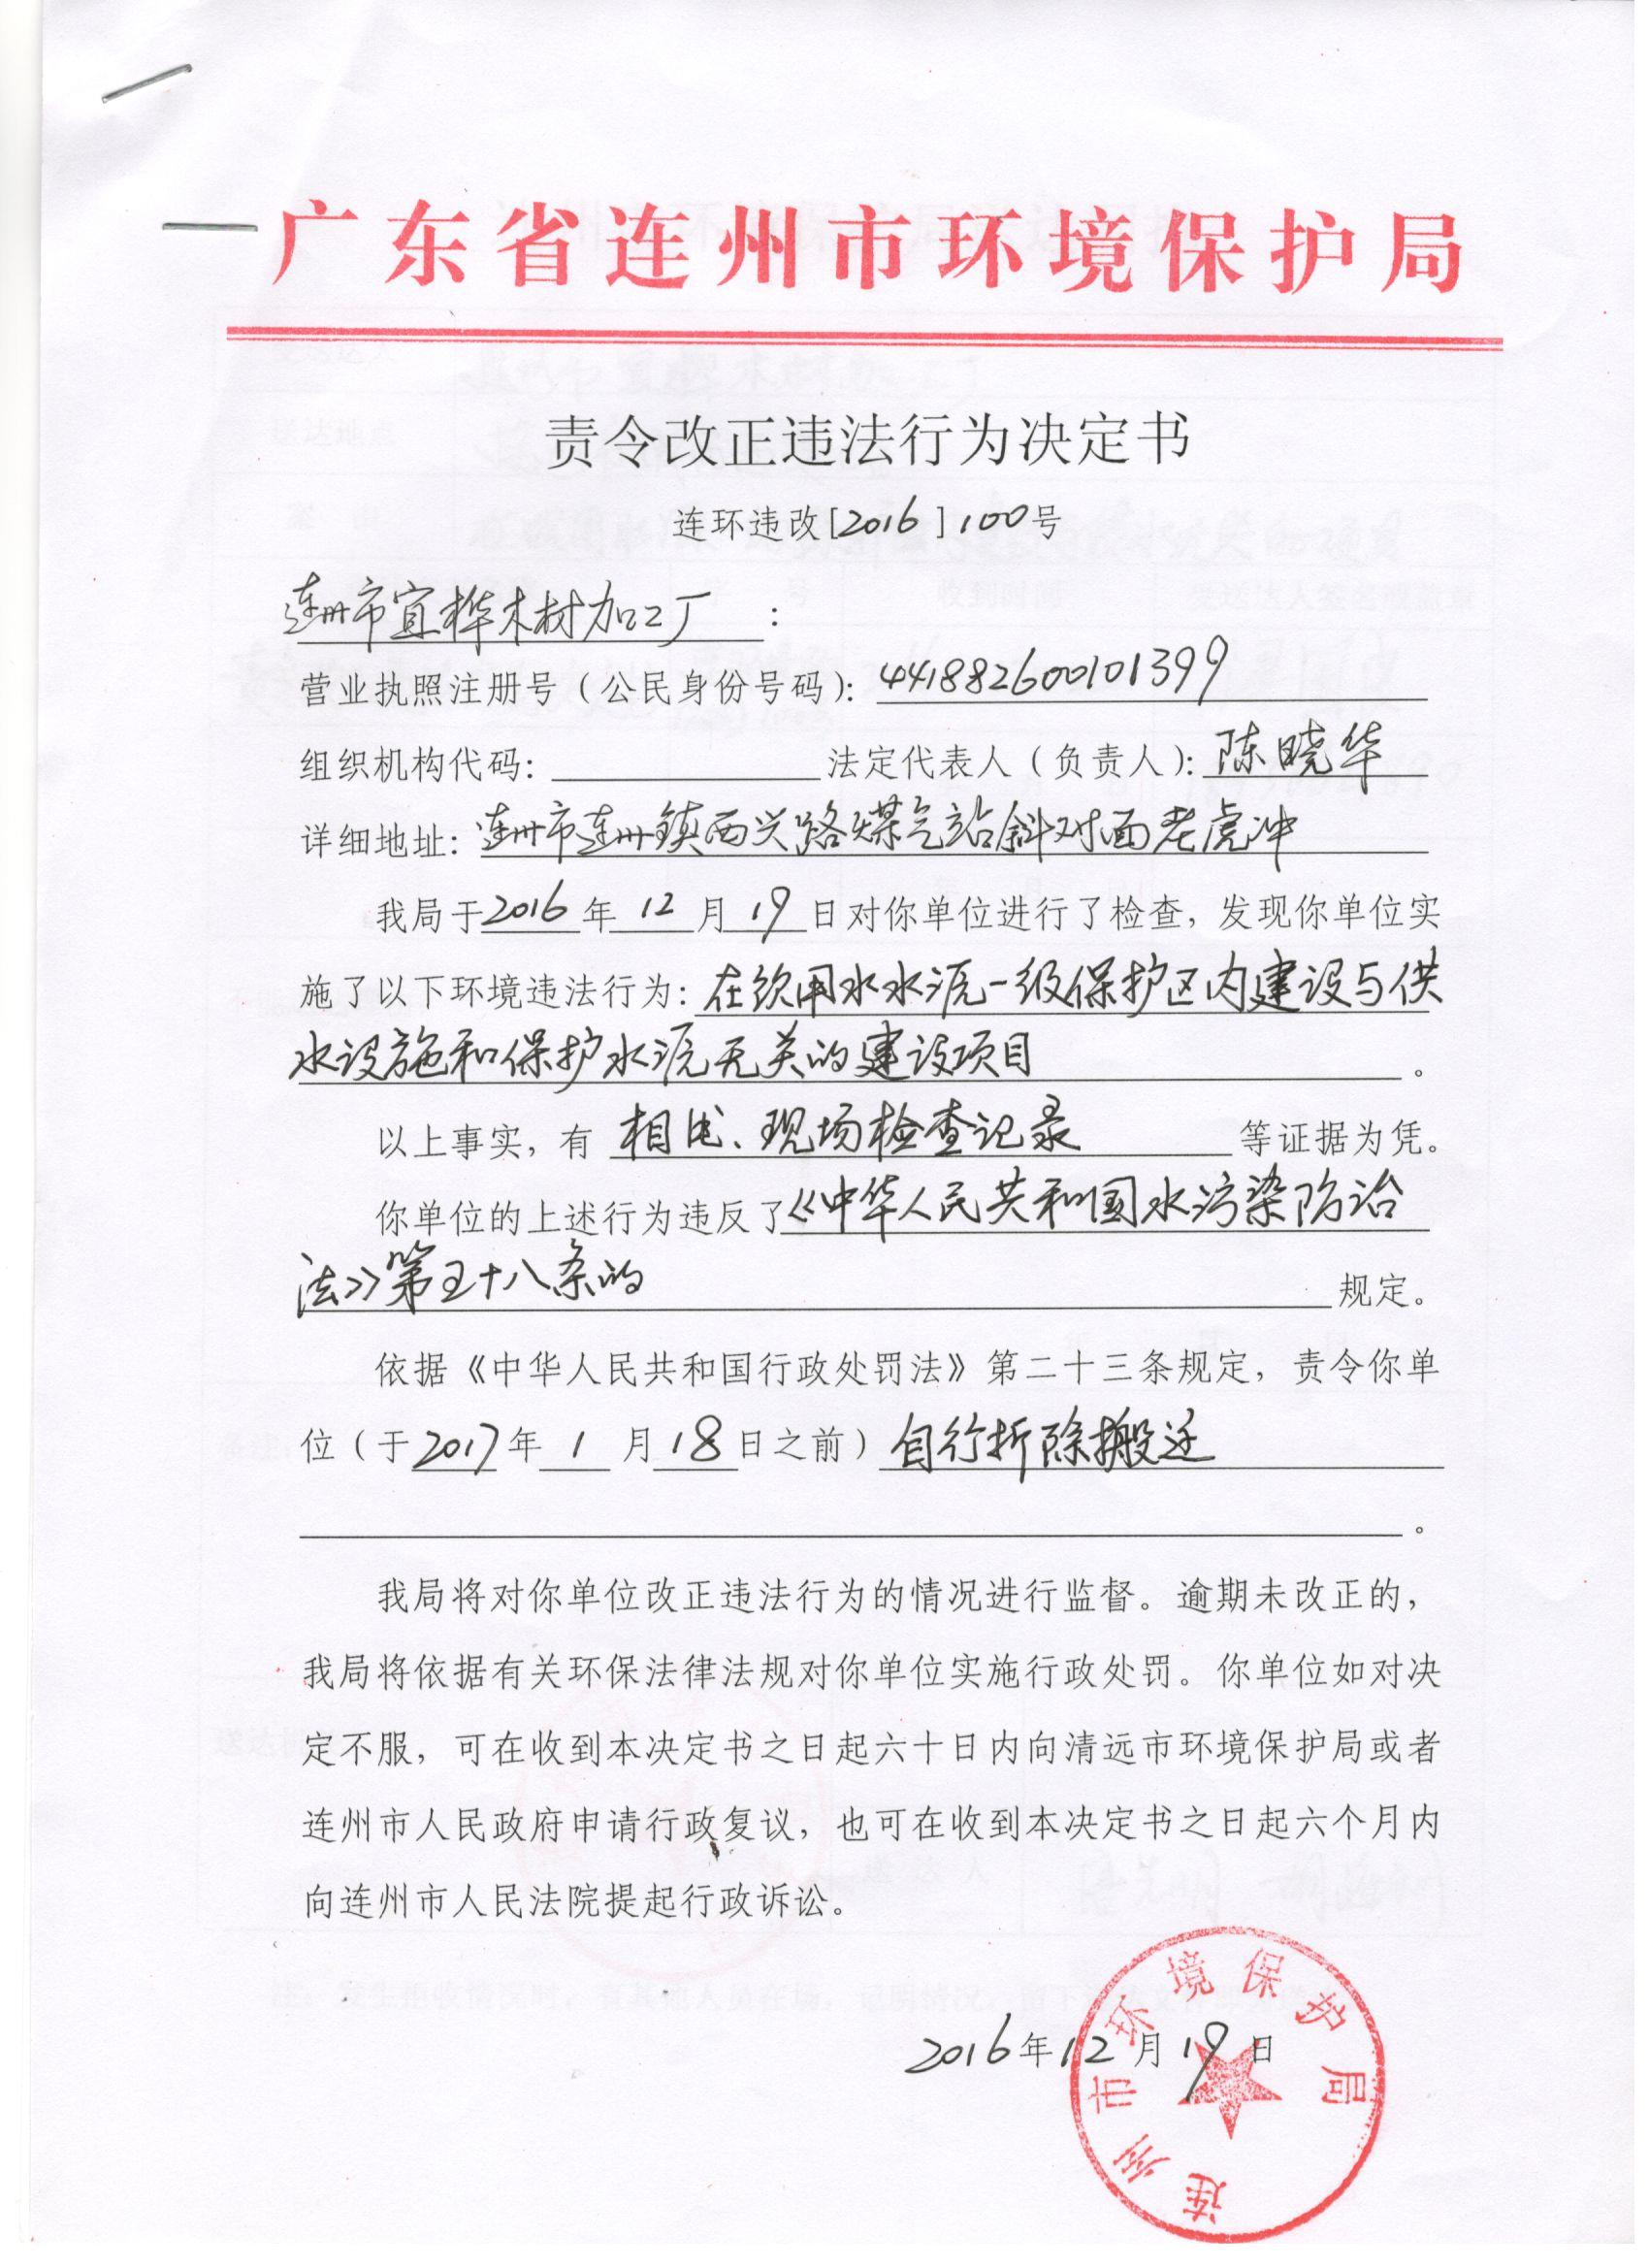 广东省连州市环境保护局
责令改正违法行为决定书
连环违改[2016]100号
连州市宜桦木材加工厂：
营业执照注册号（公民身份号码）：441882600101399
组织机构代码：法定代表人（负责人）：陈晓华
详细地址：连州市连州镇西兴路煤气站斜对面老虎冲
我局于2016年12月19日对你单位进行了检查，发现你单位实
施了以下环境违法行为：在饮用水水源一级保护区内建设与供
水设施和保护水源无关的建设项目。
以上事实，有相片、现场检查记录等证据为凭。
你单位的上述行为违反了《中华人民共和国水污染防治
法》第五十八条的规定。
依据《中华人民共和国行政处罚法》第二十三条规定，责令你单
位（于2017年1月18日之前）自行拆除搬迁
。
我局将对你单位改正违法行为的情况进行监督。逾期未改正的，
我局将依据有关环保法律法规对你单位实施行政处罚。你单位如对决
定不服，可在收到本决定书之日起六十日内向清远市环境保护局或者
连州市人民政府申请行政复议，也可在收到本决定书之日起六个月内
向连州市人民法院提起行政诉讼。
2016年12月19日
连州市环境保护局